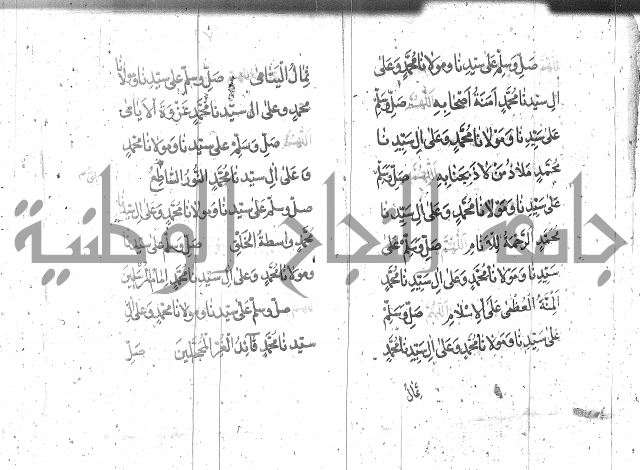 اللهم صَلِّ وَسَلِّمْ عَلَى سَيِّدِنَا وَمَوْلَانَا مُحَمَّدٍ وَعَلَى
الِ سَيِّدِنَا مُحَمَّدٍ اَمَنَةِ اَصْحَابِهِ اللهم صَلِّ وَسَلِّمْ
عَلَى سَيِّدِنَا وَمَوْلَانَا مُحَمَّدٍ وَعَلَى الِ سَيِّدِنَا
مُحَمَّدٍ مَلَاذُ مَنْ لَاذَ بِجَنَابِهِ اللهم صَلِّ وَسَلِّمْ
عَلَى سَيِّدِنَا وَمَوْلَانَا مُحَمَّدٍ وَعَلَى الِ سَيِّدِنَا
مُحَمَّدٍ الرَّحْمَةِ لِلْاَنَامِ اللهم صَلِّ وَسَلِّمْ عَلَى
سَيِّدِنَا وَمَوْلَانَا مُحَمَّدٍ وَعَلَى الِ سَيِّدِنَا مُحَمَّدٍ
المِنَّةِ الْعُظْمَى عَلَى الْاِسْلَامِ اللهم صَلِّ وَسَلِّمْ
عَلَى سَيِّدِنَا وَمَوْلَانَا مُحَمَّدٍ وَعَلَى الِ سَيِّدِنَا مُحَمَّدٍ
ثمال
ثِمَالُ الْيَتَامَى اللهم صَلِّ وَسَلِّمْ عَلَى سَيِّدِنَا وَمَوْلَانَا
مُحَمَّدٍ وَعَلَى الِ سَيِّدِنَا مُحَمَّدٍ عَزْوَةِ الْاَيَامَى
اللهم صَلِّ وَسَلِّمْ عَلَى سَيِّدِنَا وَمَوْلَانَا مُحَمَّدٍ
وَعَلَى الِ سَيِّدِنَا مُحَمَّدٍ النُّورِ السَّاطِعِ
صَلِّ وَسَلِّمْ عَلَى سَيِّدِنَا وَمَوْلَانَا مُحَمَّدٍ وَعَلَى الِ سَيِّدِنَا
مُحَمَّدٍ وَاسِطَةِ الْخَلْقِ صَلِّ وَسَلِّمْ عَلَى سَيِّدِنَا
وَمَوْلَانَا مُحَمَّدٍ وَعَلَى الِ سَيِّدِنَا مُحَمَّدٍ اِمَامِ الْمُرْسَلِينَ
اللهم صَلِّ وَسَلِّمْ عَلَى سَيِّدِنَا وَمَوْلَانَا مُحَمَّدٍ وَعَلَى الِ
سَيِّدِنَا مُحَمَّدٍ قَائِدِ الْغُرِّ الْمُحَجَّلِينَ صَلِّ
جامعة النجاح الوطنية